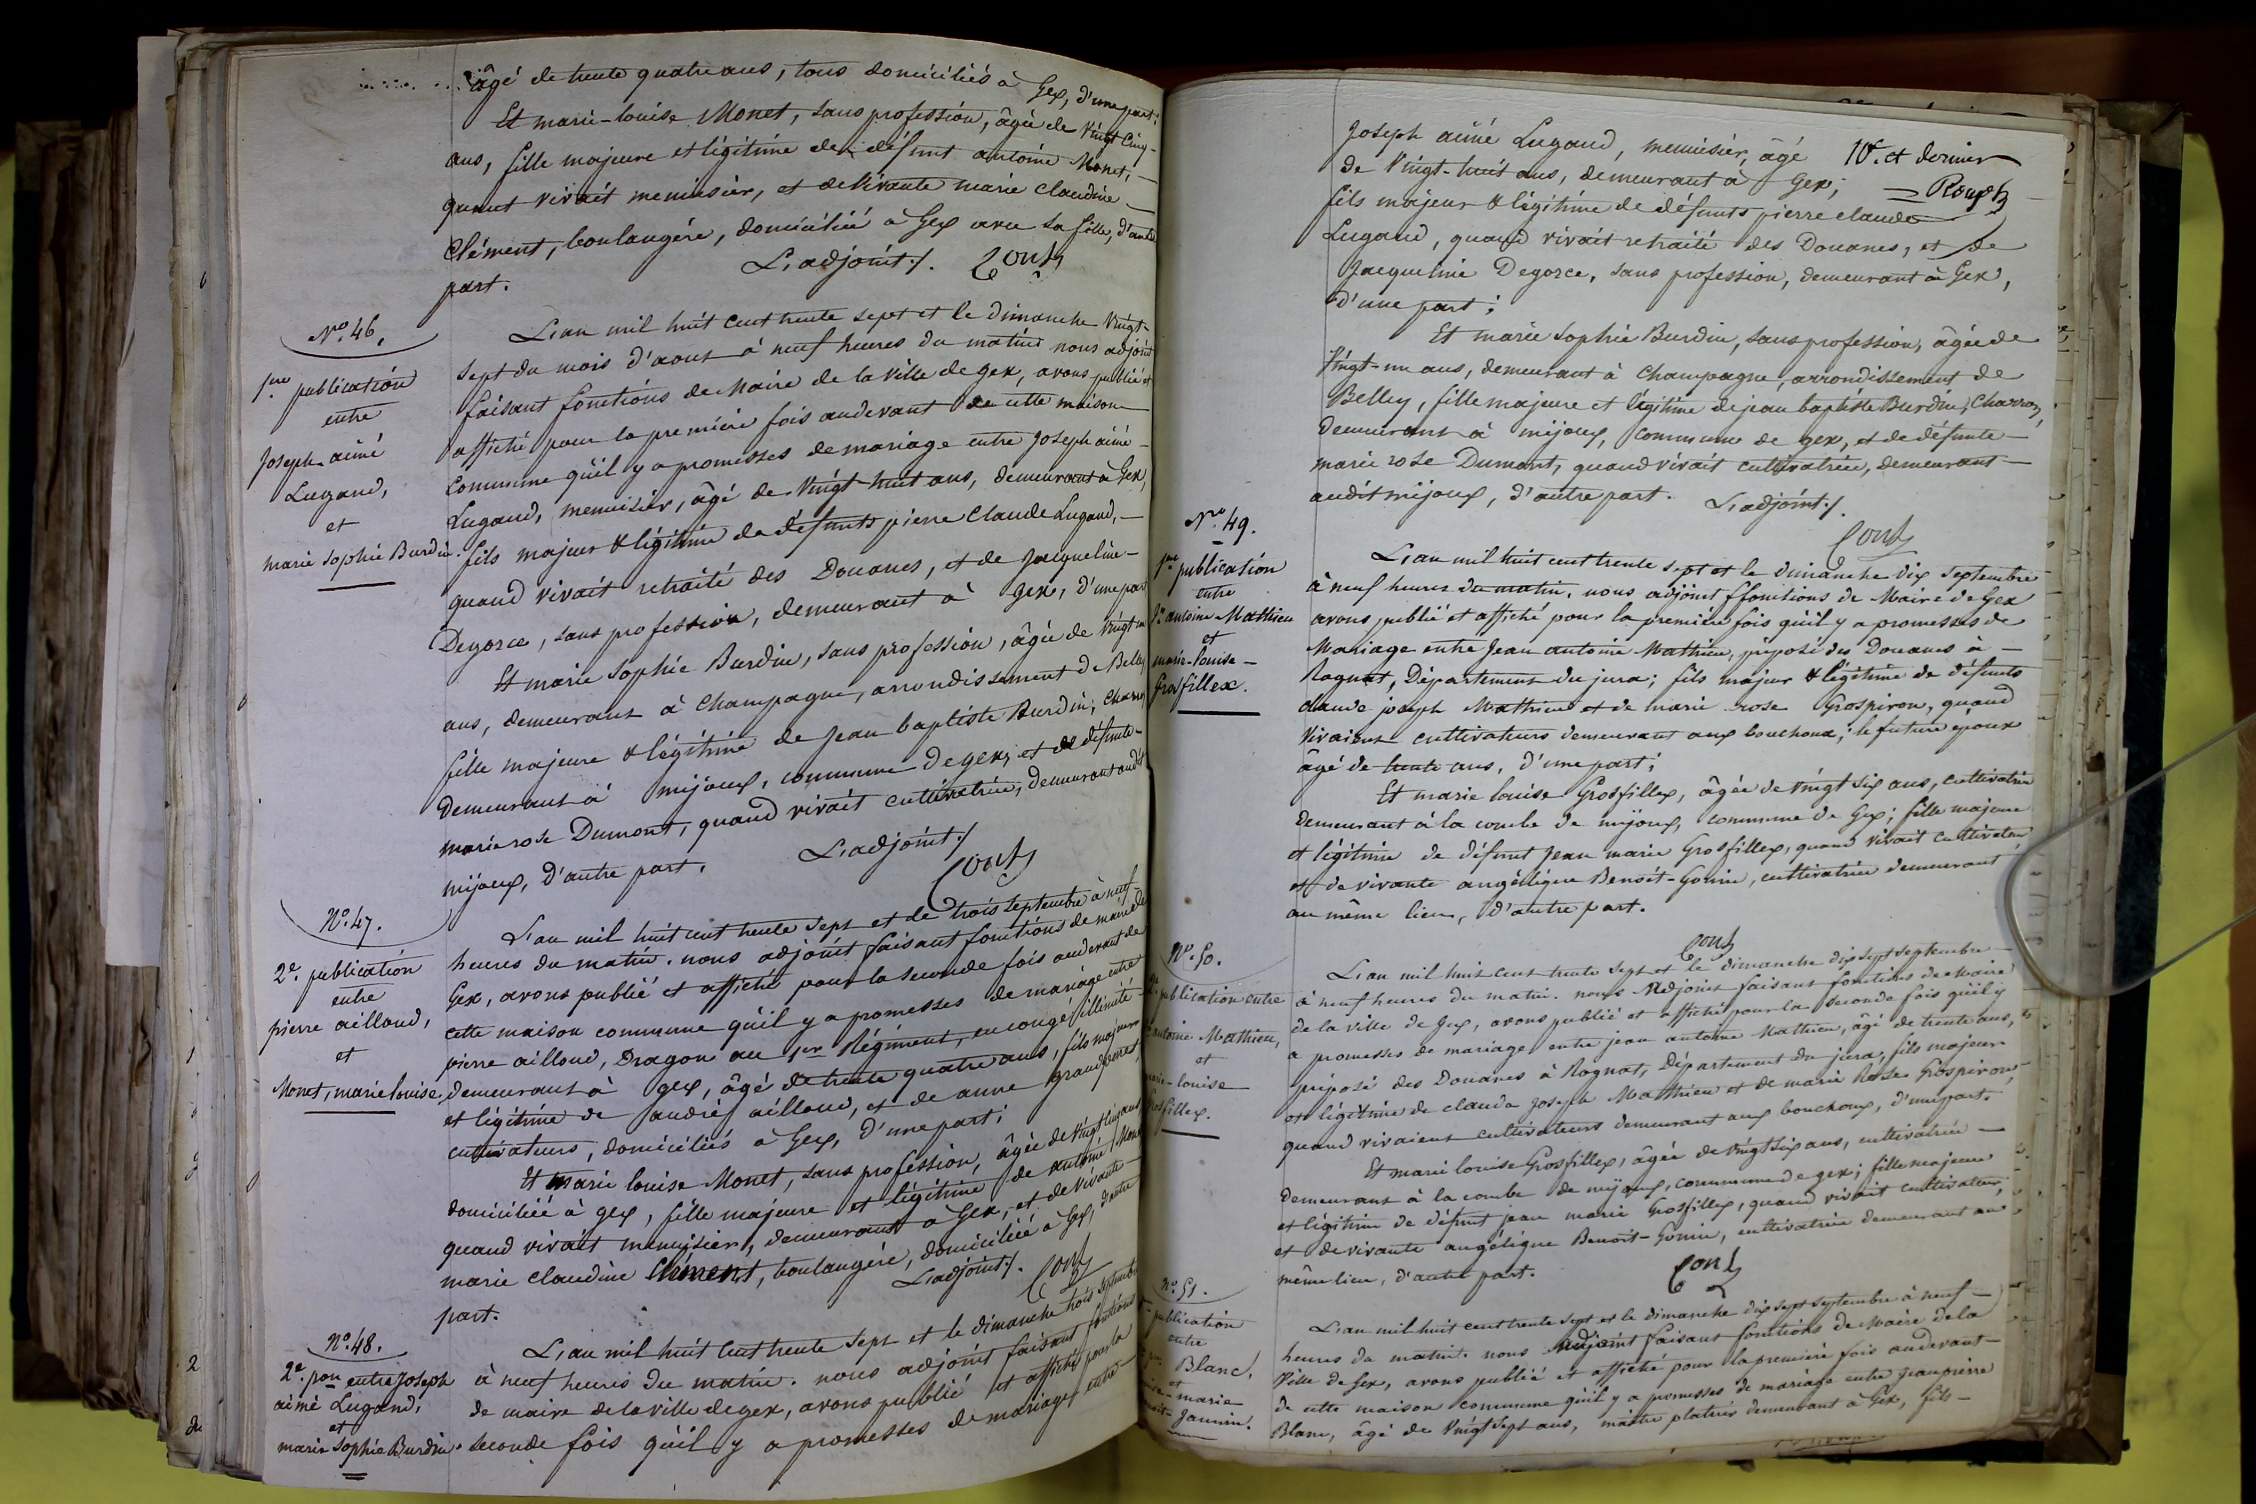 âgé de trente quatre ans, tous domiciliés à Gex, d'une part;
Et marie-louise Monet, sans profession, âgée de vingt cinq-
ans, fille majeure et légitime de défunt antoine Monet,
quand vivait menuisier, et de vivante marie claudine
Clément, boulangère, domiciliée à Gex avec sa fille, d'autre
part. L'adjoint ./.
No. 46.
1ere publication
entre
Joseph aimé
Lugand,
et
marie Sophie Burdin.
L'an mil huit cent trente sept et le dimanche vingt-
sept du mois d'aout à neuf heures du matin nous adjoint
faisant fonctions de Maire de la ville de gex, avons publié et
affiché pour la première fois audevant de cette maison
Commune qu'il y a promesses de mariage entre Joseph aimé
Lugand, menuisier, âgé de vingt-huit ans, demeurant à Gex,
fils majeur & légitime de défunts pierre Claude Lugand,
quand vivait retraité des Douanes, et de Jacqueline
Degorce, sans profession, demeurant à Gex, d'une part
Et marie Sophie Burdin, sans profession, âgée de vingt un
ans, demeurant à Champagne, arrondissement de Belley
fille majeure & légitime de Jean baptiste Burdin, charron
demeurant à mijoux, commune de gex, et de défunte
marie rose Dumont, quand vivait cultivatrice, demeurant audit
mijoux, d'autre part. L'adjoint ./.
No. 47.
2e. publication
entre
pierre ailloud,
et
Monet, marie louise
L'an mil huit cent trente sept et le trois septembre à neuf
heures du matin. nous adjoint faisant fonctions de maire de
Gex, avons publié et affiché pour la seconde fois audevant de
cette maison commune qu'il y a promesses de mariage entre
pierre ailloud, Dragon au 1er Régiment, en congé illimité
demeurant à gex, âgé de trente quatre ans, fils majeur
et légitime de andré ailloud, et de anne
cultivateurs, domiciliés à Gex, d'une part;
Et marie louise Monet, sans profession, âgée de vingt cinq ans
domiciliée à gex, fille majeure et légitime de antoine Monet
quand vivait menuisier, demeurant à Gex, et de vivante
marie claudine Clément, boulangère, domiciliée à Gex, d'autre
part. L'adjoint ./.
No. 48.
2e. pon entre Joseph
aimé Lugand,
et
marie Sophie Burdin.
L'an mil huit cent trente sept et le dimanche trois septembre
à neuf heures du matin. nous adjoint faisant fonctions
de maire de la ville de gex, avons publié et affiché pour la
seconde fois qu'il y a promesses de mariage entre
10e. et dernier
Joseph aimé Lugand, menuisier, âgé
de vingt-huit ans, demeurant à Gex;
fils majeur & légitime de défunts pierre claude
Lugand, quand vivait retraité des Douanes, et de
Jacqueline Degorce, sans profession, demeurant à Gex,
d'une part;
Et marie Sophie Burdin, sans profession, âgée de
vingt-un ans, demeurant à Champagne, arrondissement de
Belley, fille majeure et légitime de jean baptiste Burdin, Charron,
demeurant à mijoux, commune de gex, et de défunte
marie rose Dumont, quand vivait cultivatrice, demeurant
audit mijoux, d'autre part. L'adjoint ./.
No. 49.
1ere publication
entre
Jn antoine Mathieu
et
marie-louise
Grosfillex.
L'an mil huit cent trente sept et le dimanche dix septembre
à neuf heures du matin, nous adjoint ffonctions de Maire de Gex
avons publié et affiché pour la première fois qu'il y a promesses de
Mariage entre Jean antoine Mathieu, préposé des Douanes à
Rognat, Département du jura; fils majeur & légitime de défunts
claude joseph Mathieu et de marie rose Grospiron, quand
vivaient cultivateurs demeurant aux bouchoux; le future époux
âgé de trente ans, d'une part;
Et marie louise Grosfillex, âgée de vingt six ans, cultivatrice
demeurant à la combe de mijoux, commune de Gex; fille majeure
et légitime de défunt Jean marie Grosfillex, quand vivait cultivateur,
et de vivante angélique Benoit-Gonin, cultivatrice demeurant
au même lieu, d'autre part.
No. 50.
publication entre
antoine Mathieu,
et
marie-louise
Grosfillex.
L'an mil huit cent trente sept et le dimanche dix sept septembre
à neuf heures du matin. nous Adjoint faisant fonctions de Maire
de la ville de Gex, avons publié et affiché pour la seconde fois qu'il y
a promesses de mariage entre jean antoine Mathieu, âgé de trente ans,
préposé des Douanes à Rognat, Département du jura, fils majeur
et légitime de claude Joseph Mathieu et de marie Rose Grospiron,
quand vivaient cultivateurs demeurant aux bouchoux, d'une part.
Et marie louise Grosfillex, âgée de vingt six ans, cultivatrice
demeurant à la combe de mijoux, commune de gex; fille majeure
et légitime de défunt jean marie Grosfillex, quand vivait cultivateur,
et de vivante angélique Benoit-Gonin, cultivatrice demeurant au
même lieu, d'autre part.
No. 51.
publication
entre
Blanc,
et
marie
Jannin.
L'an mil huit cent trente sept et le dimanche dix sept septembre à neuf
heures du matin. nous Adjoint faisant fonctions de Maire de la
Ville de Gex, avons publié et affiché pour la première fois audevant
de cette maison commune qu'il y a promesses de mariage entre Jean pierre
Blanc, âgé de vingt sept ans, maitre platrier demeurant à Gex, fils